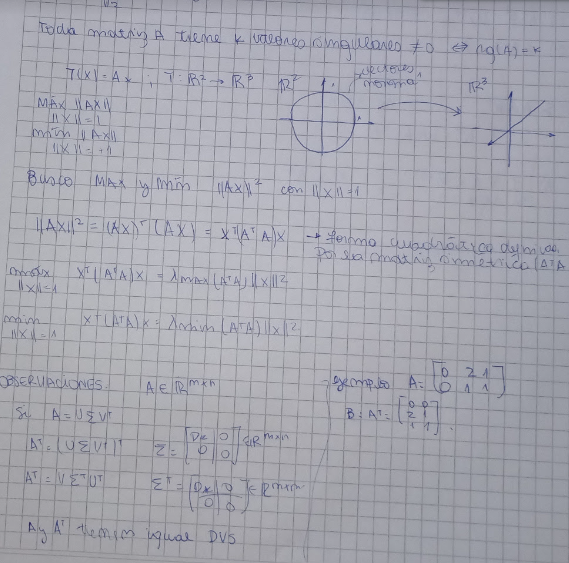 Toda matriz A tiene k valores singulares ≠0 ⇔ rg(A)=k
T(X)=Ax ; T: R² → R³
R²
R³
MAX ||AX||
||X||=1
min ||AX||
||X||=1
Busco MAX y min ||AX||² con ||X||=1
||AX||² = (AX)ᵀ(AX) = Xᵀ(AᵀA)X → forma cuadrática
Por la matriz simétrica (AᵀA
max Xᵀ(AᵀA)X = λmax(AᵀA)||X||²
||X||=1
min Xᵀ(AᵀA)X = λmin(AᵀA)||X||²
||X||=1
OBSERVACIONES. A∈R^mxn
Si A=UΣVᵀ
Aᵀ=(UΣVᵀ)ᵀ Σ= [Dk 0
0 0] ∈R^mxn
Aᵀ=VΣᵀUᵀ Σᵀ= [Dk 0
0 0] ∈R
A y Aᵀ tienen igual DVS
ejemplo A= [0 2 1
0 1 1]
B=Aᵀ= [0 0
2 1
1 1]